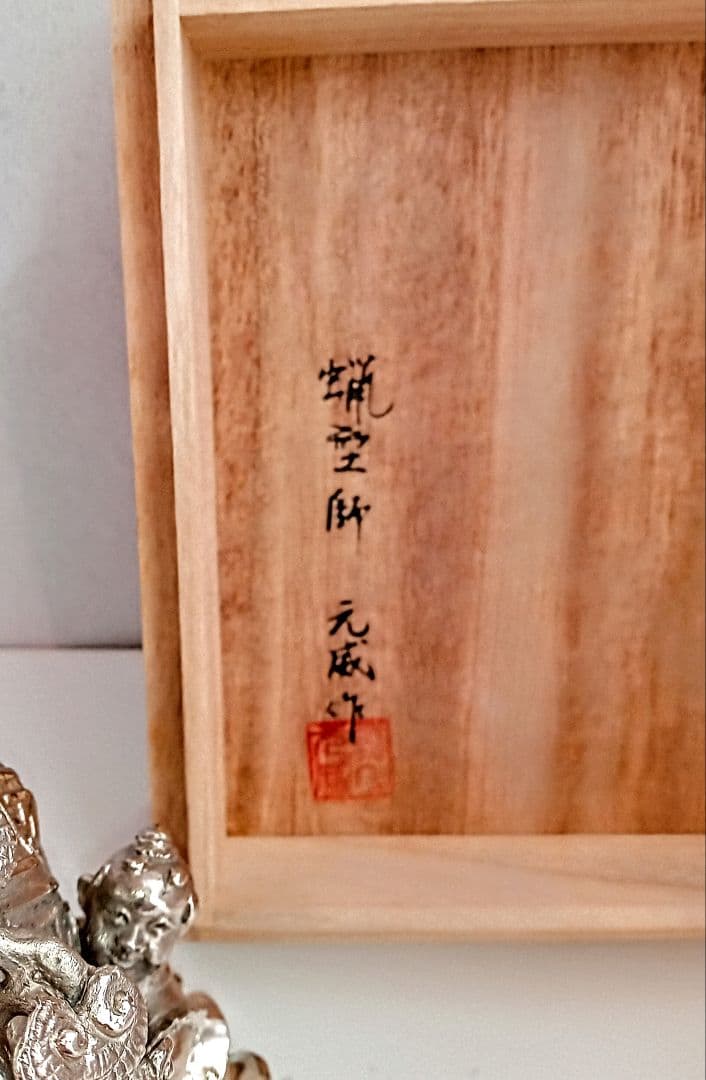 蝋型師 元威作